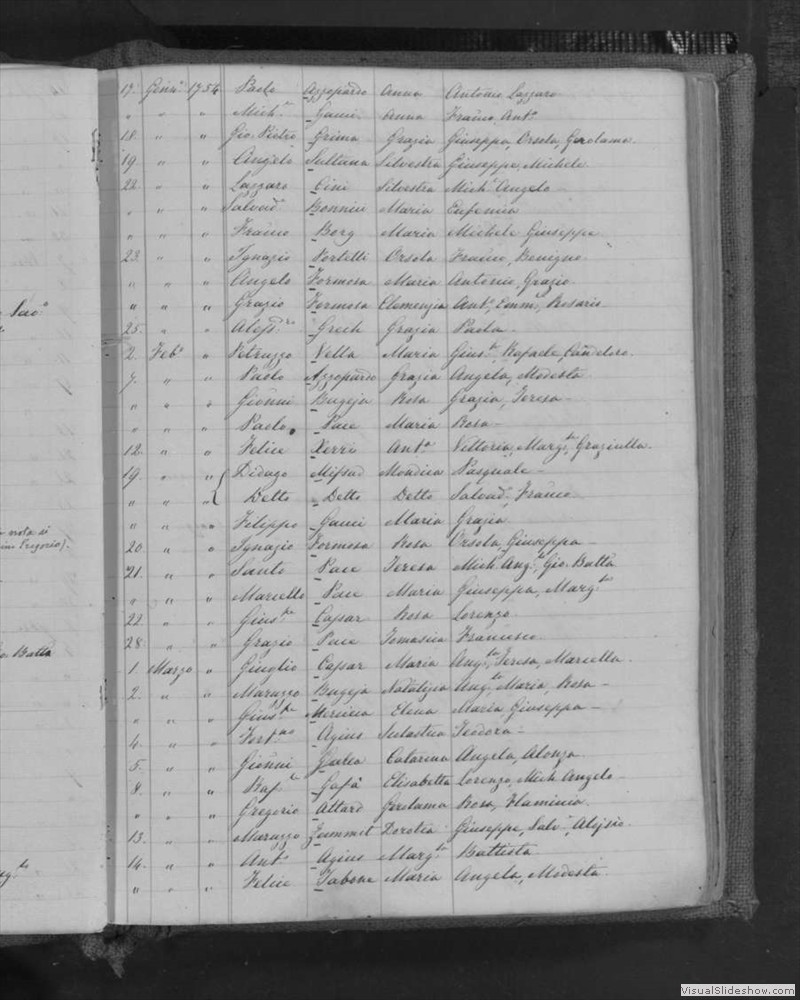 17. Genn.º 1754 Paolo Azzopardo Anna Antonio, Lazzaro
" " " Mich.e Gauci Anna Franco Ant.º
18. " " Gio. Pietro Grima Grazia Giuseppa, Orsola, Gerolama.
19. " " Angelo Sultana Silvestra Giuseppe, Michele
22. " " Lazzaro Cini Silvestra Mich.l Angelo -
" " " Salvad.e Bonnici Maria Eufemia
" " " Franco Borg Maria Michele Giuseppe
23. " " Ignazio Portelli Orsola Franco, Benigno
" " " Angelo Formosa Maria Antonio, Grazio.
" " " Grazio Formosa Clemenzia Ant.º, Emm.l, Rosario
25. " " Aless.dro Grech Grazia Paola -
2. Feb.º " Petruzzo Vella Maria Gius.a, Rafaele, Candeloro.
7. " " Paolo Azzopardo Grazia Angela, Modesta
" " " Gionni Bugeja Rosa Grazia, Teresa -
" " " Paolo Pace Maria Rosa -
12. " " Felice Xerri Ant.a Vittoria, Marg.ta, Graziulla.
19. " " { Didaco Mifsud Mondica Pasquale
" " " { Detto " Detto Detto Salvad.e, Franco
" " " Filippo Gauci Maria Grazia
20. " " Ignazio Formosa Rosa Orsola, Giuseppa -
21. " " Santo Pace Teresa Mich. Ang.l, Gio. Batta
" " " Marcello Pace Maria Giuseppa, Marg.ta
22. " " Gius.pe Cassar Rosa Lorenzo
28. " " Grazio Pace Tomasica Francesco
1. Marzo " Giuglio Cassar Maria Ang.la, Teresa, Marcella.
2. " " Maruzzo Bugeja Natalizia Ang.la Maria, Rosa -
" " " Gius.pe Mercieca Elena Maria, Giuseppa -
4. " " Fort.no Agius Teodora -
5. " " Gionni Galea Catarina Angela, Alonza
8. " " Raf.le Gafà Elisabetta Lorenzo, Mich. Angelo -
" " " Gregorio Attard Gerolama Rosa, Flaminia
13. " " Maruzzo Zammit Dorotea Giuseppe, Salv.e, Aloisio.
14. " " Ant.º Agius Marg.ta Battista
" " " Felice Tabone Maria Angela, Modesta
nota si
Batta
VisualSlideshow.com